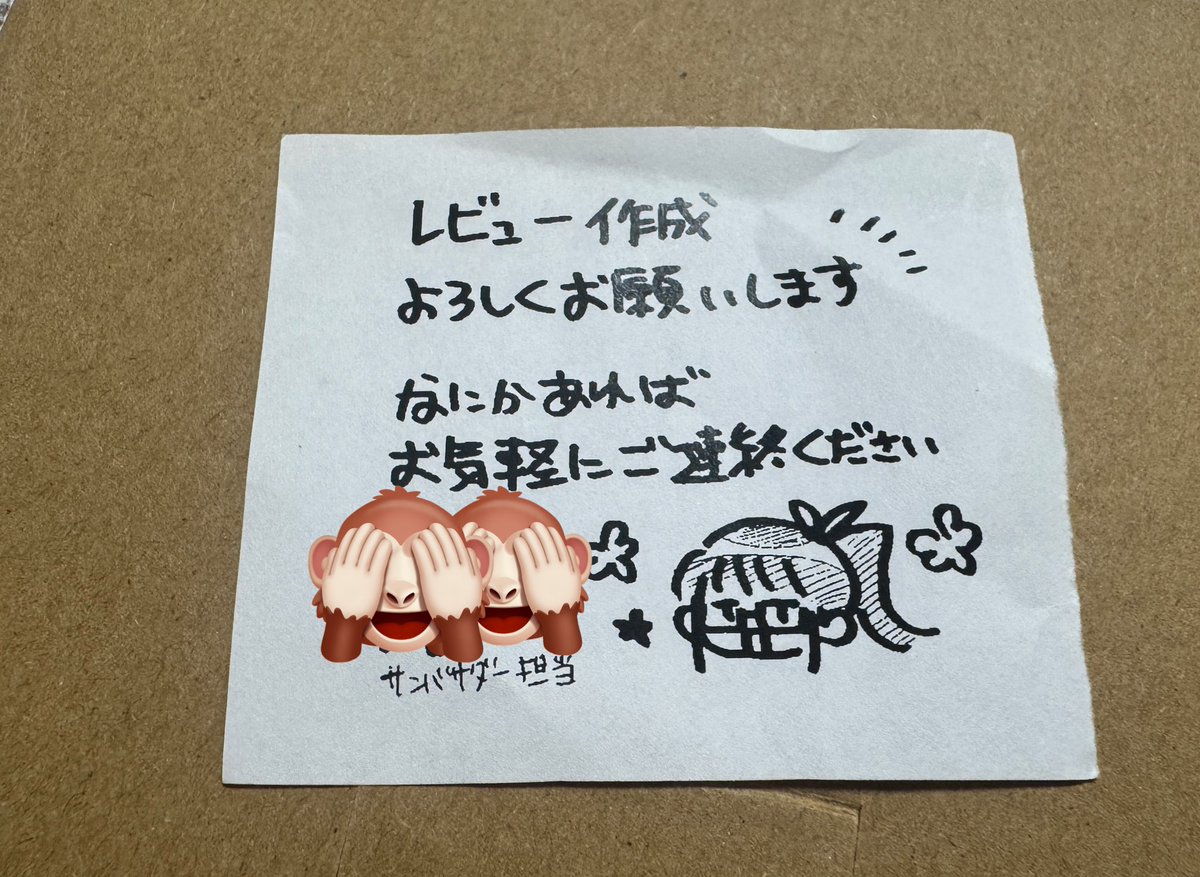 レビュー作成
よろしくお願いします
なにかあれば
お気軽にご連絡ください
サンバサダー担当